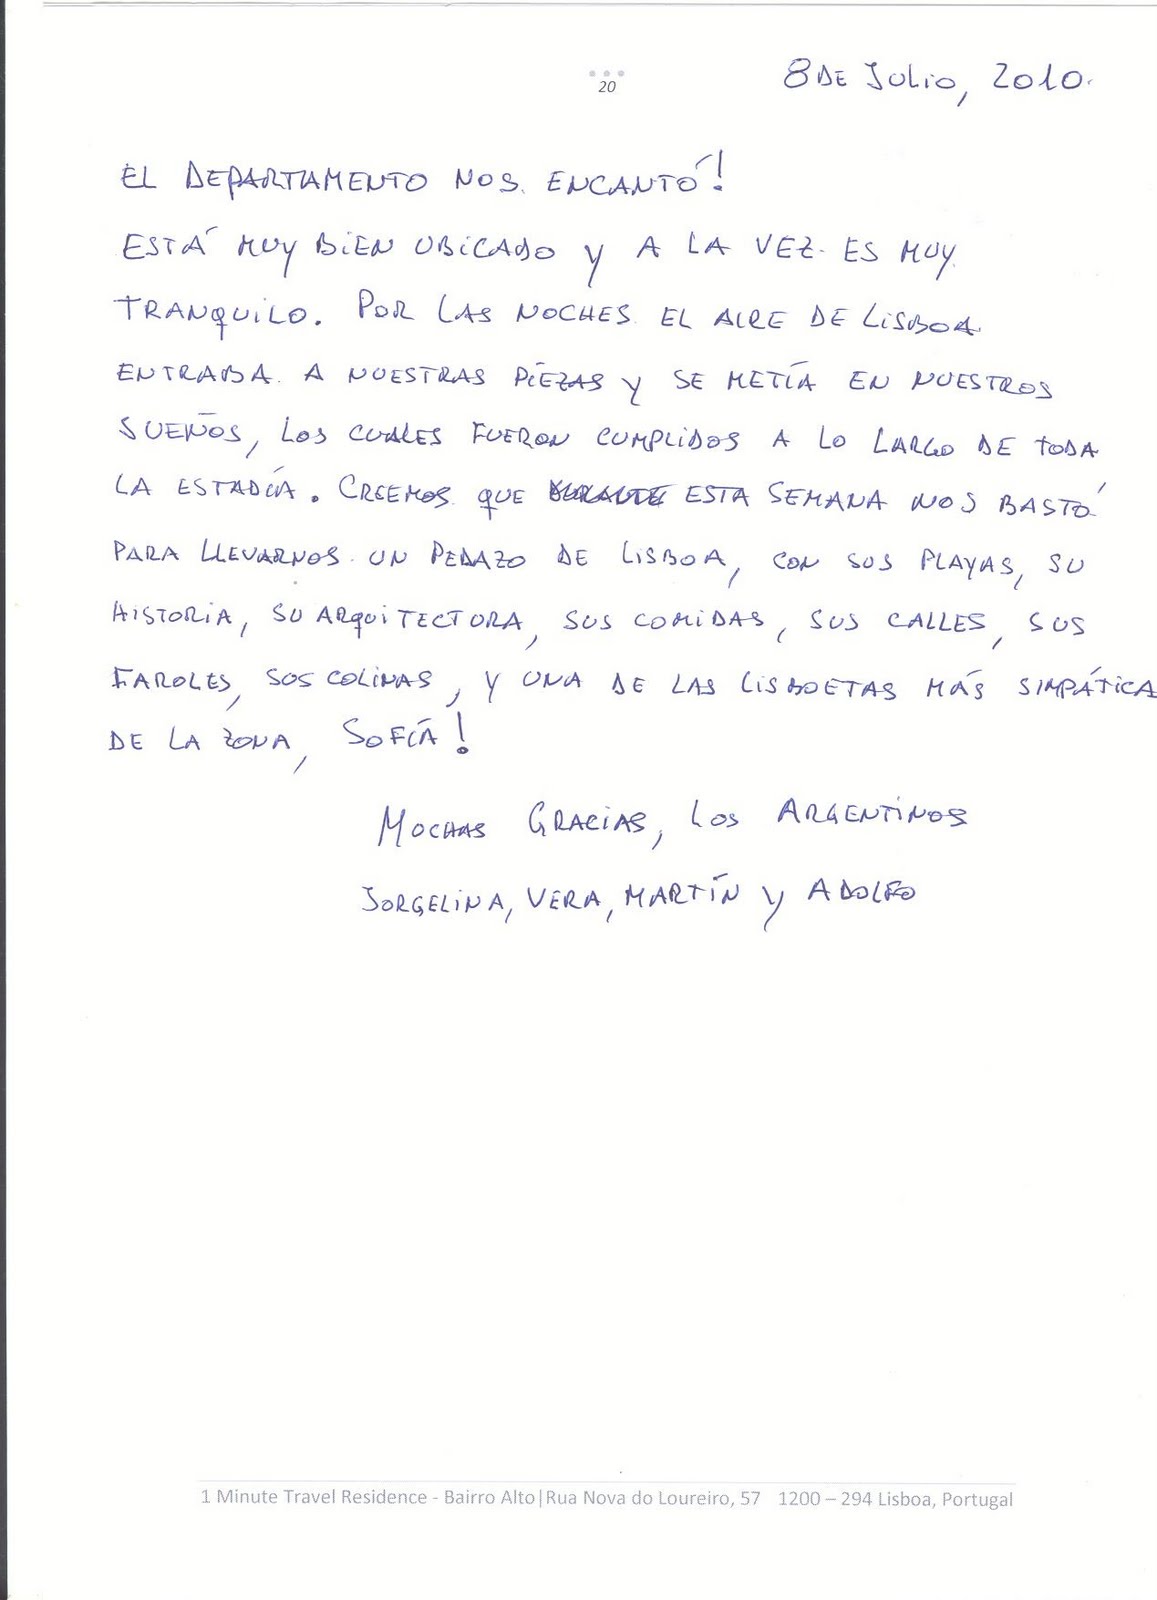 20
8 DE JULIO, 2010.
EL DEPARTAMENTO NOS ENCANTÓ!
ESTÁ MUY BIEN UBICADO Y A LA VEZ ES MUY
TRANQUILO. POR LAS NOCHES EL AIRE DE LISBOA
ENTRABA A NUESTRAS PIEZAS Y SE METÍA EN NUESTROS
SUEÑOS, LOS CUALES FUERON CUMPLIDOS A LO LARGO DE TODA
LA ESTADÍA. CREEMOS QUE ESTA SEMANA NOS BASTÓ
PARA LLEVARNOS UN PEDAZO DE LISBOA, CON SUS PLAYAS, SU
HISTORIA, SU ARQUITECTURA, SUS COMIDAS, SUS CALLES, SUS
FAROLES, SUS COLINAS, Y UNA DE LAS LISBOETAS MÁS SIMPÁTICA
DE LA ZONA, SOFÍA!
MUCHAS GRACIAS, LOS ARGENTINOS
JORGELINA, VERA, MARTÍN Y ADOLFO
1 Minute Travel Residence - Bairro Alto|Rua Nova do Loureiro, 57 1200 – 294 Lisboa, Portugal